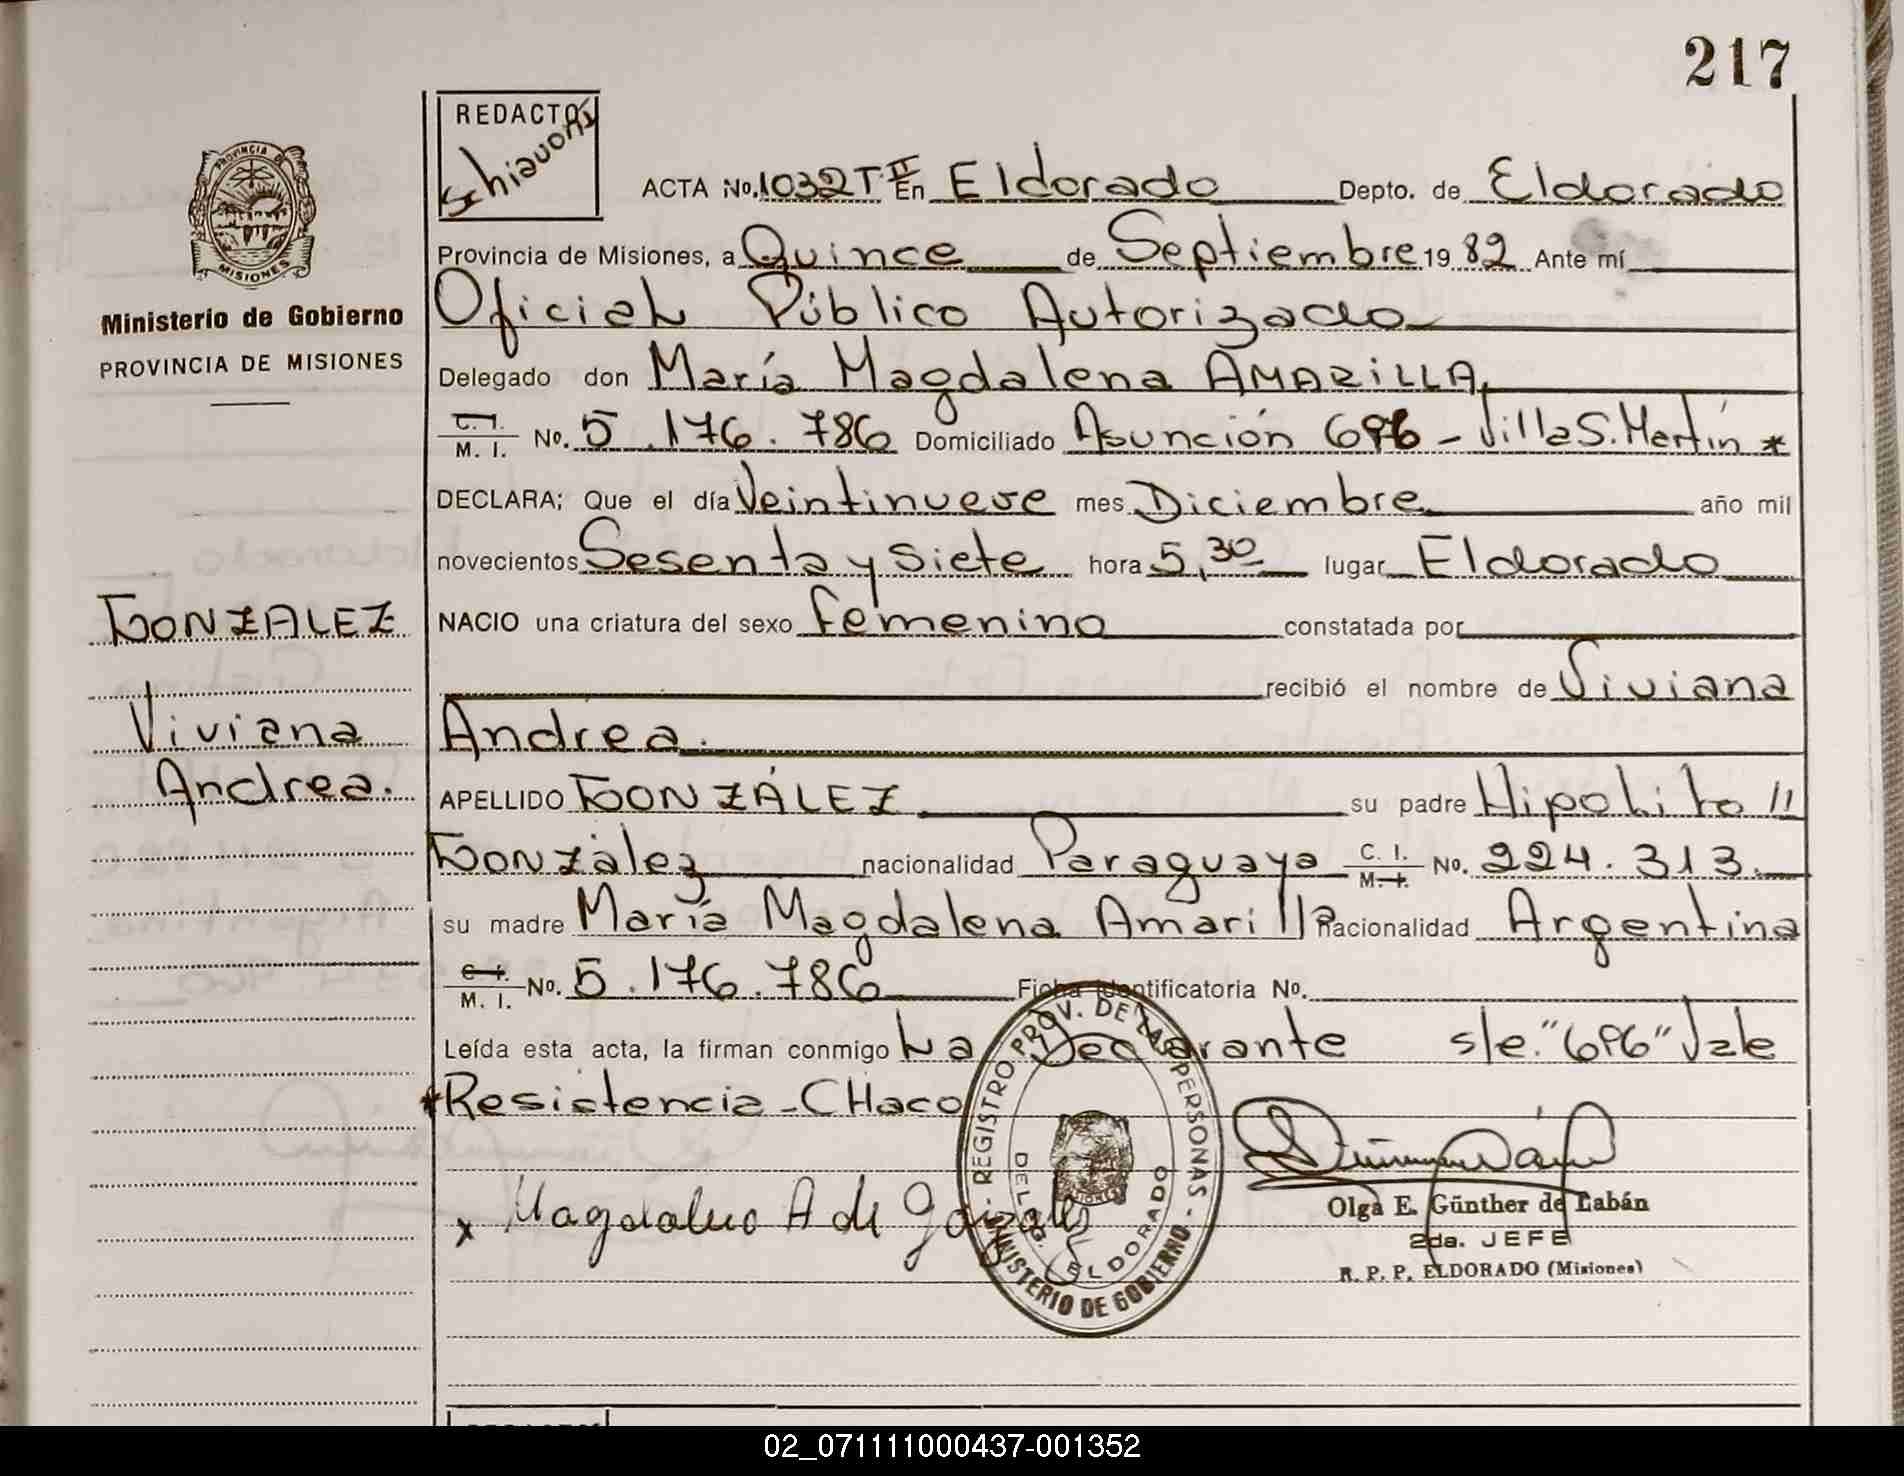 217
REDACTO
Schiavoni
PROVINCIA DE
MISIONES
Ministerio de Gobierno
PROVINCIA DE MISIONES
ACTA No. 1032 T II En Eldorado Depto. de Eldorado
Provincia de Misiones, a Quince de Septiembre 19 82 Ante mí
Oficial Público Autorizado
Delegado don María Magdalena AMARILLA,
C. I.
M. I. No. 5.176.786 Domiciliado Asunción 696 - Villa S. Martín *
DECLARA; Que el día Veintinueve mes Diciembre año mil
novecientos Sesenta y Siete hora 5,30 lugar Eldorado
GONZALEZ
NACIO una criatura del sexo femenino constatada por
recibió el nombre de Viviana
Viviana
Andrea.
Andrea.
APELLIDO GONZÁLEZ su padre Hipolito //
González nacionalidad Paraguaya C. I. M. I. No. 224.313.
su madre María Magdalena Amarilla nacionalidad Argentina
C. I.
M. I. No. 5.176.786 Ficha identificatoria No.
Leída esta acta, la firman conmigo La Declarante s/e. "696" Vale
* Resistencia - CHaco
REGISTRO PROV. DE LAS PERSONAS - MINISTERIO DE GOBIERNO -
DELEG. ELDORADO
x Magdalena A de González
Olga E. Günther de Labán
2da. JEFE
R. P. P. ELDORADO (Misiones)
02_071111000437-001352